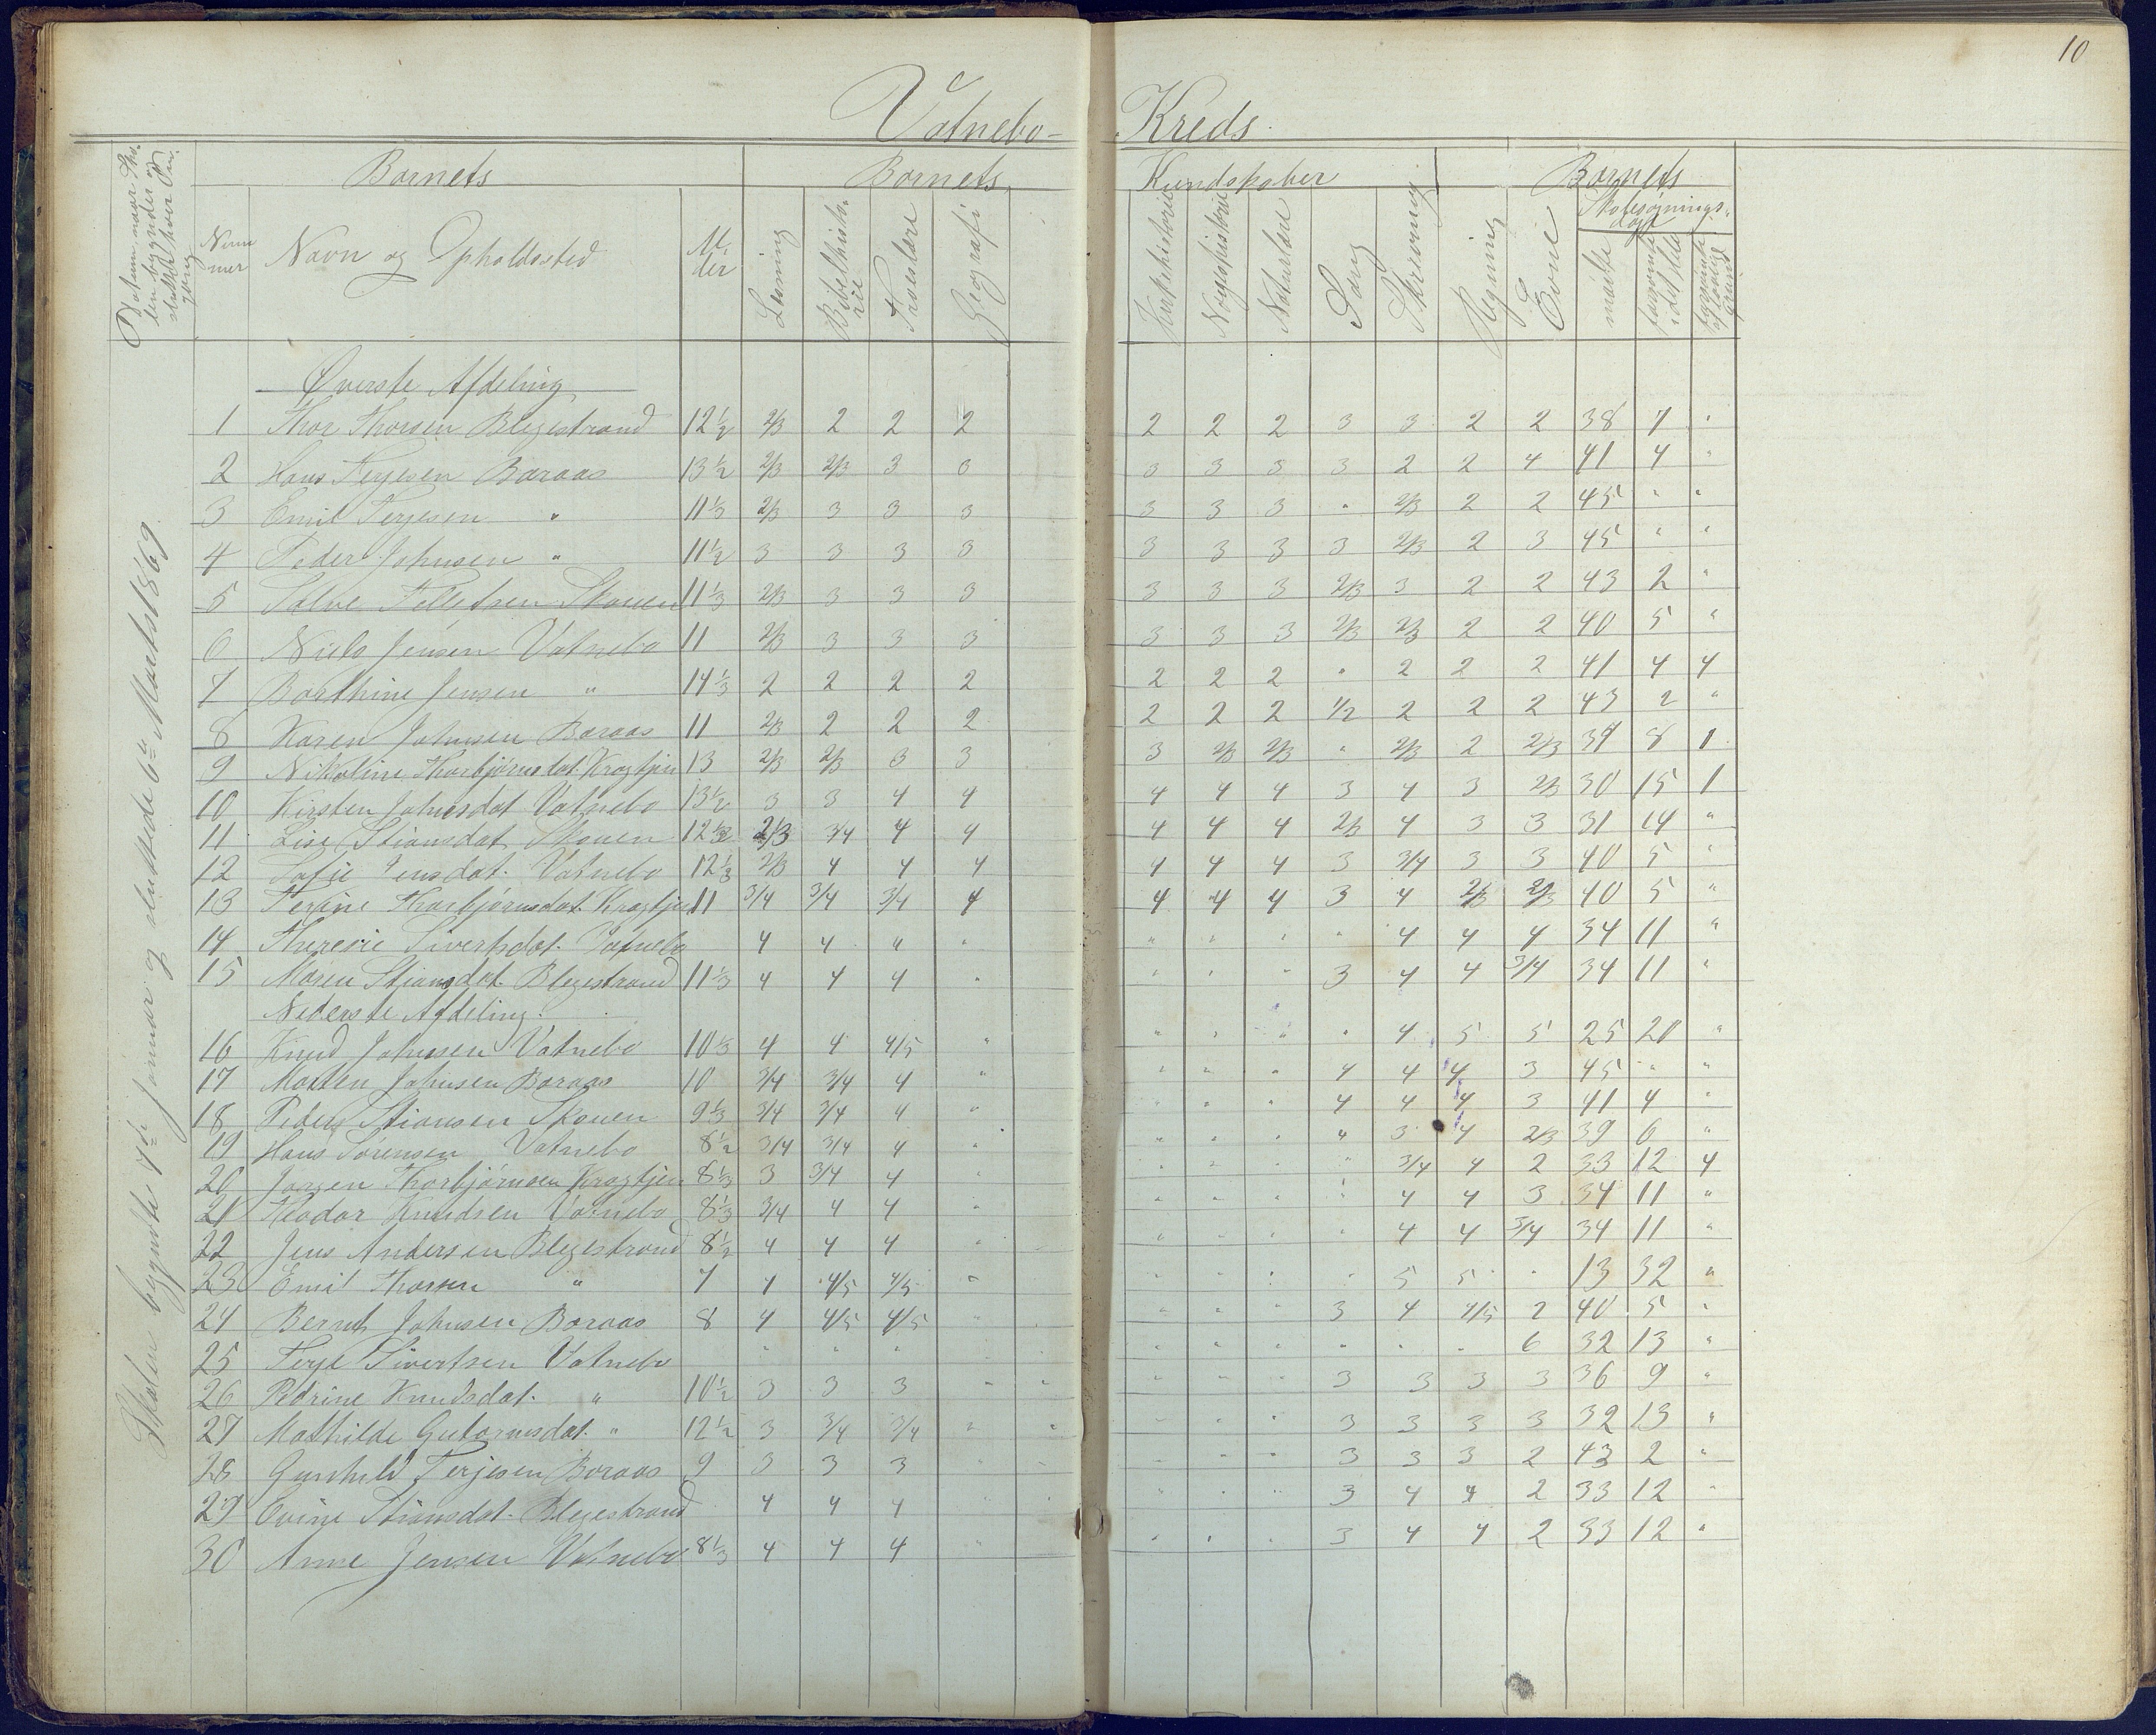 10
Vatnebo- Kreds.
Datum, naar Sko-
len begynder og
slutter hver Om-
gang
Barnets
Barnets
Kundskaber
Barnets
Num
mer
Navn og Opholdssted
Al-
der
Læsning
Bibelhisto-
rie
Troeslære
Geografi
Kirkehistorie
Norgeshistorie
Naturlære
Sang
Skrivning
Regning
Evne
Skolesøgnings-
dage
mødte
forsømte
i det hele
forsømte
af lovlig
Grund
Skolen begyndte 7de Januar og sluttede 6te Marts 1869.
Øverste Afdeling
1 Thor Thorsen Blegestrand 12 1/2 2/3 2 2 2 2 2 2 3 3 2 2 38 7 "
2 Hans Terjesen Baraas 13 1/2 2/3 2/3 3 3 3 3 3 3 2 2 4 41 4 "
3 Emil Terjesen " 11 1/3 2/3 3 3 3 3 3 3 " 2/3 2 2 45 " "
4 Peder Johnsen " 11 1/2 3 3 3 3 3 3 3 3 2/3 2 3 45 " "
5 Salve Tellefsen Skouen 11 1/3 2/3 3 3 3 3 3 3 2/3 3 2 2 43 2 "
6 Niels Jensen Vatnebo 11 2/3 3 3 3 3 3 3 2/3 2/3 2 2 40 5 "
7 Barthine Jensen " 14 1/3 2 2 2 2 2 2 2 " 2 2 2 41 4 4
8 Karen Johnsen Baraas 11 2/3 2 2 2 2 2 2 1/2 2 2 2 43 2 "
9 Nikoline Thorbjørnsdat. Kragtjen 13 2/3 2/3 3 3 3 2/3 2/3 " 2/3 2 2/3 37 8 1
10 Kirsten Johnsdat Vatnebo 13 1/2 3 3 4 4 4 4 4 3 4 3 2/3 30 15 1
11 Lise Stiansdat Skouen 12 1/2 2/3 3/4 4 4 4 4 4 2/3 4 3 3 31 14 "
12 Sofie Jensdat. Vatnebo 12 1/3 2/3 4 4 4 4 4 4 3 3/4 3 3 40 5 "
13 Terine Thorbjørnsdat. Kragtjen 11 3/4 3/4 3/4 4 4 4 4 3 4 2/3 2/3 40 5 "
14 Theresie Sivertsdat. Vatnebo 4 4 " " " " " " 4 4 4 34 11 "
15 Maren Stiansdat. Blegestrand 11 1/3 4 4 4 " " " " 3 4 4 3/4 34 11 "
Nederste Afdeling.
16 Knud Johnsen Vatnebo 10 1/3 4 4 4/5 " " " " " 4 5 5 25 20 "
17 Morten Johnsen Baraas 10 3/4 3/4 4 " " " " 4 4 4 3 45 " "
18 Peder Stiansen Skouen 9 1/3 3/4 3/4 4 " " " " 4 4 4 3 41 4 "
19 Hans Sørensen Vatnebo 8 1/2 3/4 3/4 4 " " " " " 3 4 2/3 39 6 "
20 Jørgen Thorbjørnsen Kragtjen 8 1/3 3 3/4 4 " " " " " 3/4 4 2 33 12 4
21 Theodor Knudsen Vatnebo 8 1/3 3/4 4 4 " " " " " 4 4 3 34 11 "
22 Jens Andersen Blegestrand 8 1/2 4 4 4 " " " " " 4 4 3/4 34 11 "
23 Emil Thorsen " 7 4 4/5 4/5 " " " " " 5 5 " 13 32 "
24 Bernt Johnsen Baraas 8 4 4/5 4/5 " " " " 3 4 4/5 2 40 5 "
25 Terje Sivertsen Vatnebo " " " " " " " " " " 6 32 13 "
26 Petrine Knudsdat. " 10 1/2 3 3 3 " " " " 3 3 3 3 36 9 "
27 Mathilde Gutormsdat. " 12 1/2 3 3/4 3/4 " " " " 3 3 3 3 32 13 "
28 Gunhild Terjesen Baraas 9 3 3 3 " " " " 3 3 3 2 43 2 "
29 Stiansdat. Blegestrand 4 4 4 " " " " 3 4 4 2 33 12 "
30 Anne Jensen Vatnebo 8 1/3 4 4 4 " " " " 3 4 4 2 33 12 "